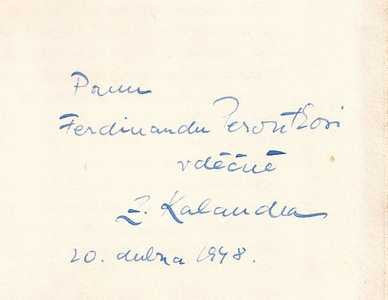 Panu
Ferdinandu Peroutkovi
vděčně
Z. Kalandra
20. dubna 1948.